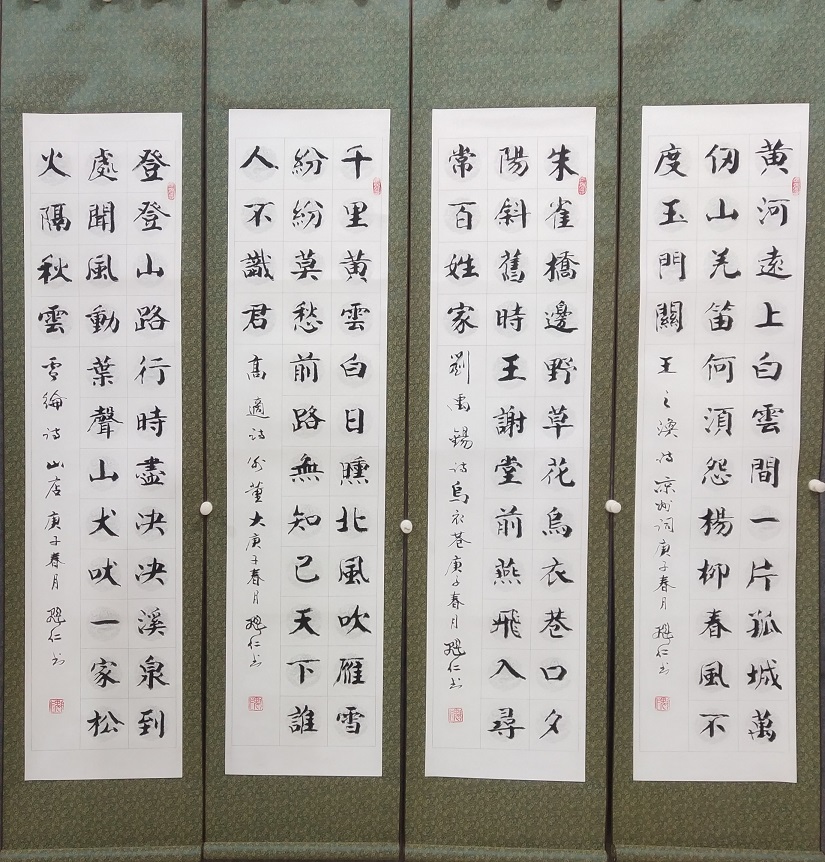 黄河遠上白雲間一片孤城萬
仞山羌笛何須怨楊柳春風不
度玉門關 王之渙诗凉州词庚子春月 仁书
朱雀橋邊野草花烏衣巷口夕
陽斜舊時王謝堂前燕飛入尋
常百姓家 劉禹錫诗烏衣巷庚子春月 仁书
千里黄雲白日曛北風吹雁雪
紛紛莫愁前路無知己天下誰
人不識君 高適诗别董大庚子春月 仁书
登登山路行時盡决决溪泉到
處聞風動葉聲山犬吠一家松
火隔秋雲 綸诗山店庚子春月 仁书